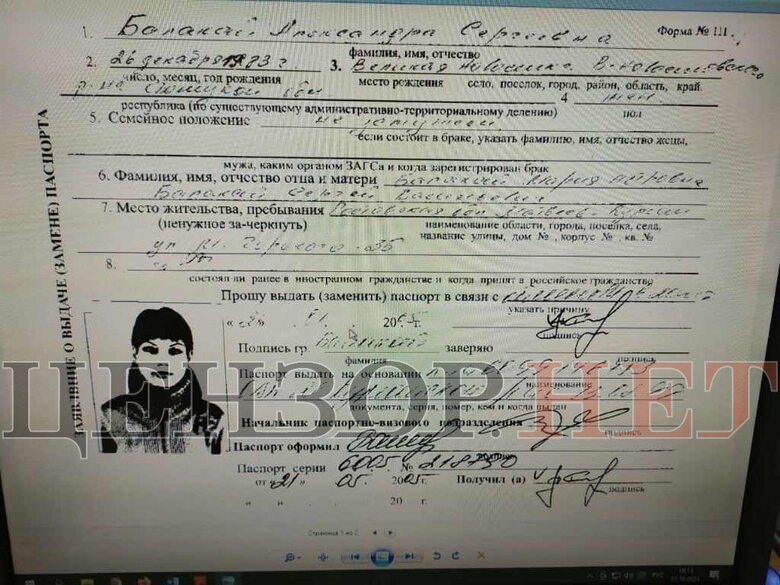 1. Балакай Александра Сергеевна Форма № 1П
фамилия, имя, отчество
2. 26 декабря 1983 г. 3. Великая Новоселка В-Новоселовского
число, месяц, год рождения место рождения село, поселок, город, район, область, край,
р-на Донецкой обл 4 жен
республика (по существующему административно-территориальному делению) пол
5. Семейное положение не замужем
если состоит в браке, указать фамилию, имя, отчество жены,
мужа, каким органом ЗАГСа и когда зарегистрирован брак
6. Фамилия, имя, отчество отца и матери Балакай Мария Петровна
Балакай Сергей Васильевич
7. Место жительства, пребывания Ростовская обл Матвеев-Курган
(ненужное за-черкнуть) наименование области, города, поселка, села,
название улицы, дом №, корпус №, кв. №
ул М. Горького
8.
состоял ли ранее в иностранном гражданстве и когда принят в российское гражданство
Прошу выдать (заменить) паспорт в связи с
указать причину
2005 г.
подпись
Подпись гр. Балакай заверяю
фамилия подпись
Паспорт выдать на основании
наименование
документа, серия, номер, кем и когда выдан
Начальник паспортно-визового подразделения
подпись
Паспорт оформил
подпись
Паспорт серии 6005 № 218730
от "21" 05. 2005 г. Получил (а)
подпись
" " 20 г.
ЗАЯВЛЕНИЕ О ВЫДАЧЕ (ЗАМЕНЕ) ПАСПОРТА
ЦЕНЗОР.НЕТ
Страница 1 из 2